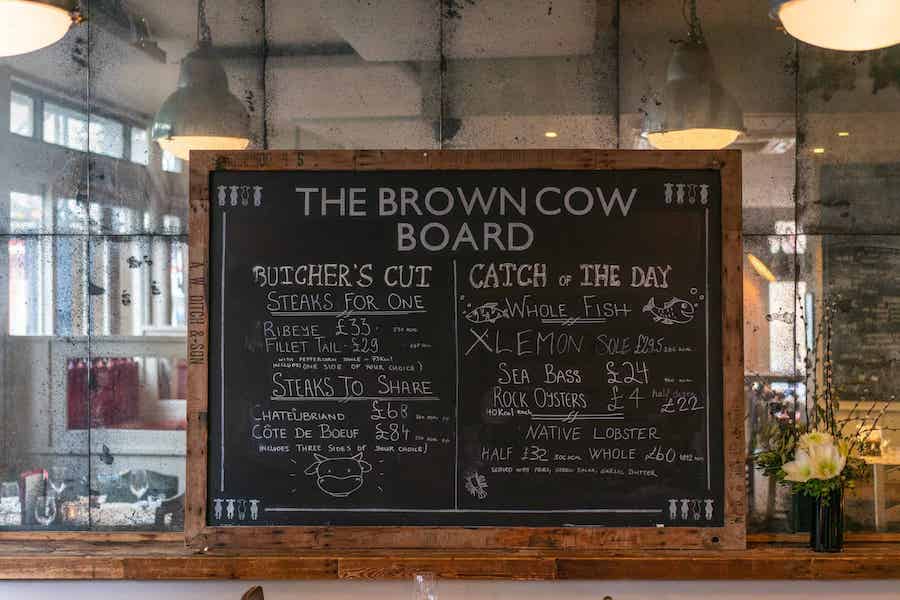 THE BROWN COW
BOARD
BUTCHER'S CUT
STEAKS FOR ONE
RIBEYE £33
FILLET TAIL - £29
WITH PEPPERCORN SAUCE
INCLUDES ONE SIDE OF YOUR CHOICE)
STEAKS TO SHARE
CHATEUBRIAND £68
CÔTE DE BOEUF £84
INCLUDES THREE SIDES OF YOUR CHOICE)
CATCH OF THE DAY
WHOLE FISH
X LEMON SOLE £29.5
SEA BASS £24
ROCK OYSTERS £4 half doz £22
40 Kcal each
NATIVE LOBSTER
HALF £32 WHOLE £60
SERVED WITH FRIES, GREEN SALAD, GARLIC BUTTER
DITCH & SON